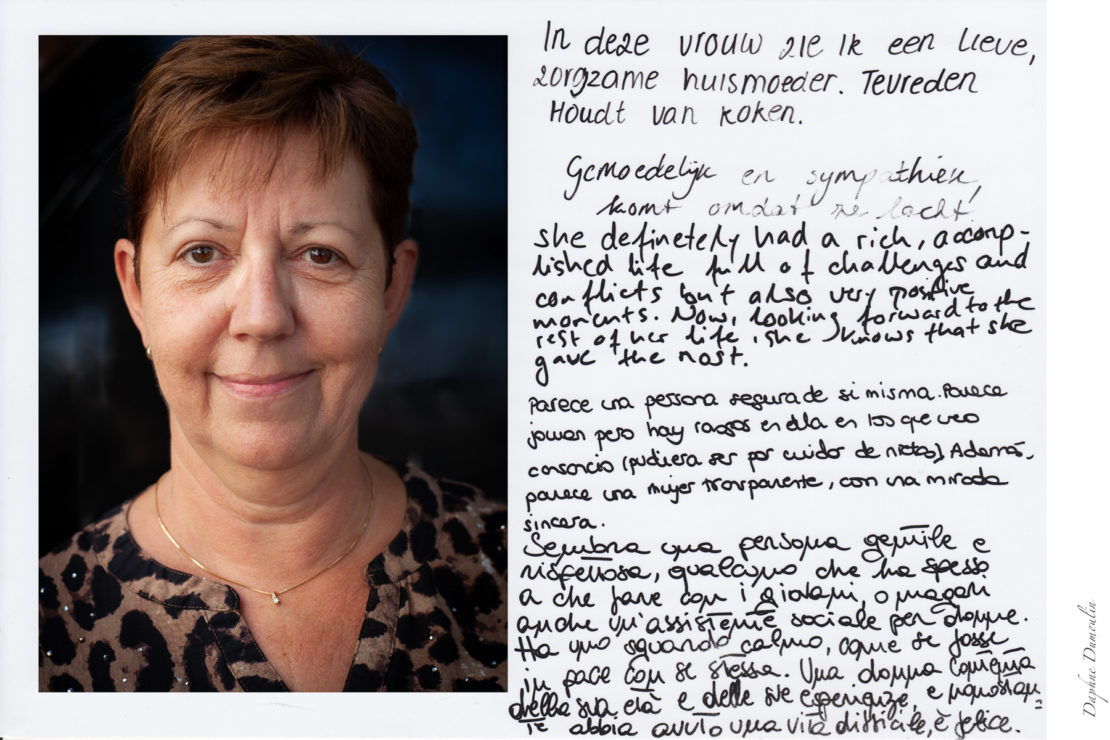 In deze vrouw zie ik een lieve,
zorgzame huismoeder. Tevreden
Houdt van koken.
Gemoedelijk en sympathiek,
komt omdat ze lacht.
She definetely had a rich, accomp-
lished life full of challenges and
conflicts but also very positive
moments. Now, looking forward to the
rest of her life, she knows that she
gave the most.
Parece una persona segura de si misma. Parece
joven pero hay rasgos en ella en los que veo
cansancio (pudiera ser por cuidar de nietos). Además,
parece una mujer transparente, con una mirada
sincera.
Sembra una persona gentile e
rispettosa, qualcuno che ha spesso
a che fare con i giovani, o magari
anche un'assistente sociale per donne.
Ha uno sguardo calmo, come se fosse
in pace con se stessa. Una donna contenta
della sua età e delle sue esperienze, e nonostan=
te abbia avuto una vita difficile, è felice.
Daphne Dumoulin